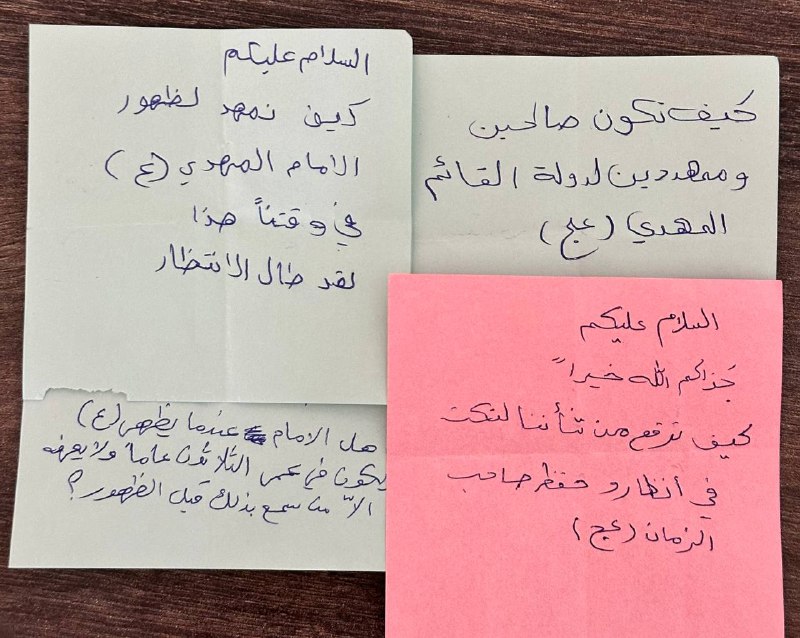 السلام عليكم
كيف نمهد لظهور
الامام المهدي (ع)
في وقتناً هذا
لقد طال الانتظار
كيف نكون صالحين
وممهدين لدولة القائم
المهدي (عج)
السلام عليكم
جزاكم الله خيراً
كيف نرفع من شأننا لنكت
في أنظار و حفظ صاحب
الزمان (عج)
هل الامام عندما يظهر (ع)
يكون في عمر الثلاثون عاماً ولا يعرفه
الاّ من سمع بذلك قبل الظهور؟